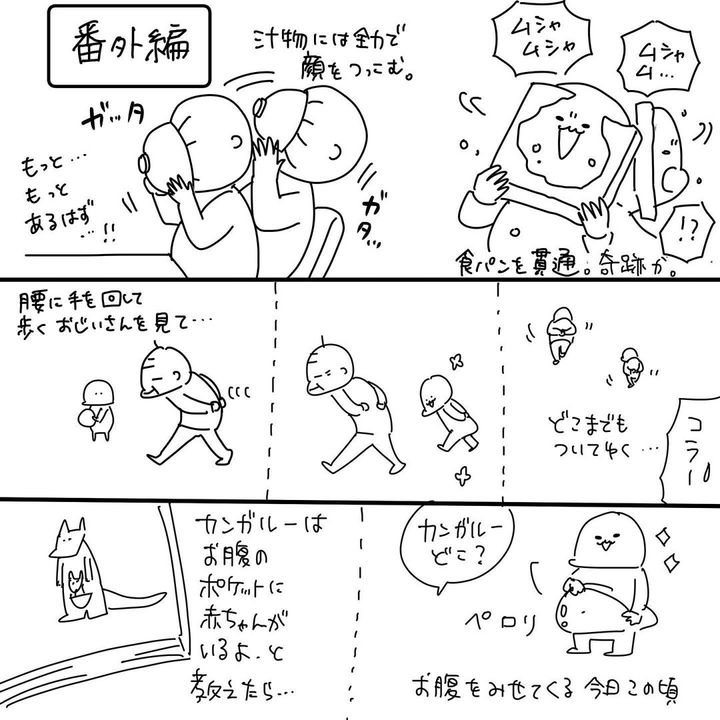 番外編
汁物には全力で
顔をつっこむ。
ガッタ
もっと…
もっと
あるはず
…!!
ガタッ
ムシャ
ムシャ
ムシャ
ム…
!?
食パンを貫通。奇跡か。
腰に手を回して
歩くおじいさんを見て…
どこまでも
ついてゆく…
コラー
カンガルーは
お腹の
ポケットに
赤ちゃんが
いるよ、と
教えたら…
カンガルー
どこ?
ペロリ
お腹をみせてくる今日この頃